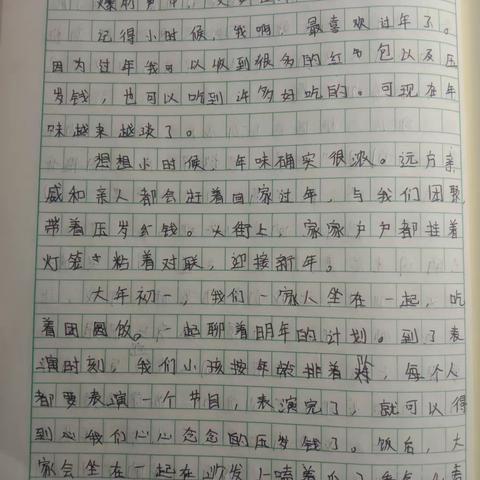 记得小时候，我啊，最喜欢过年了。
因为过年我可以收到很多的红包以及压
岁钱，也可以吃到许多好吃的。可现在年
味越来越淡了。
想想小时候，年味确实很浓。远方亲
戚和亲人都会赶着回家过年，与我们团聚，
带着压岁钱。大街上，家家户户都挂着
灯笼，粘着对联，迎接新年。
大年初一，我们一家人坐在一起，吃
着团圆饭。一起聊着明年的计划。到了表
演时刻，我们小孩按年龄排着，每个人
都要表演一个节目，表演完了，就可以得
到心我们心心念念的压岁钱了。饭后，大
家会坐在一起在沙发上嗑着瓜子